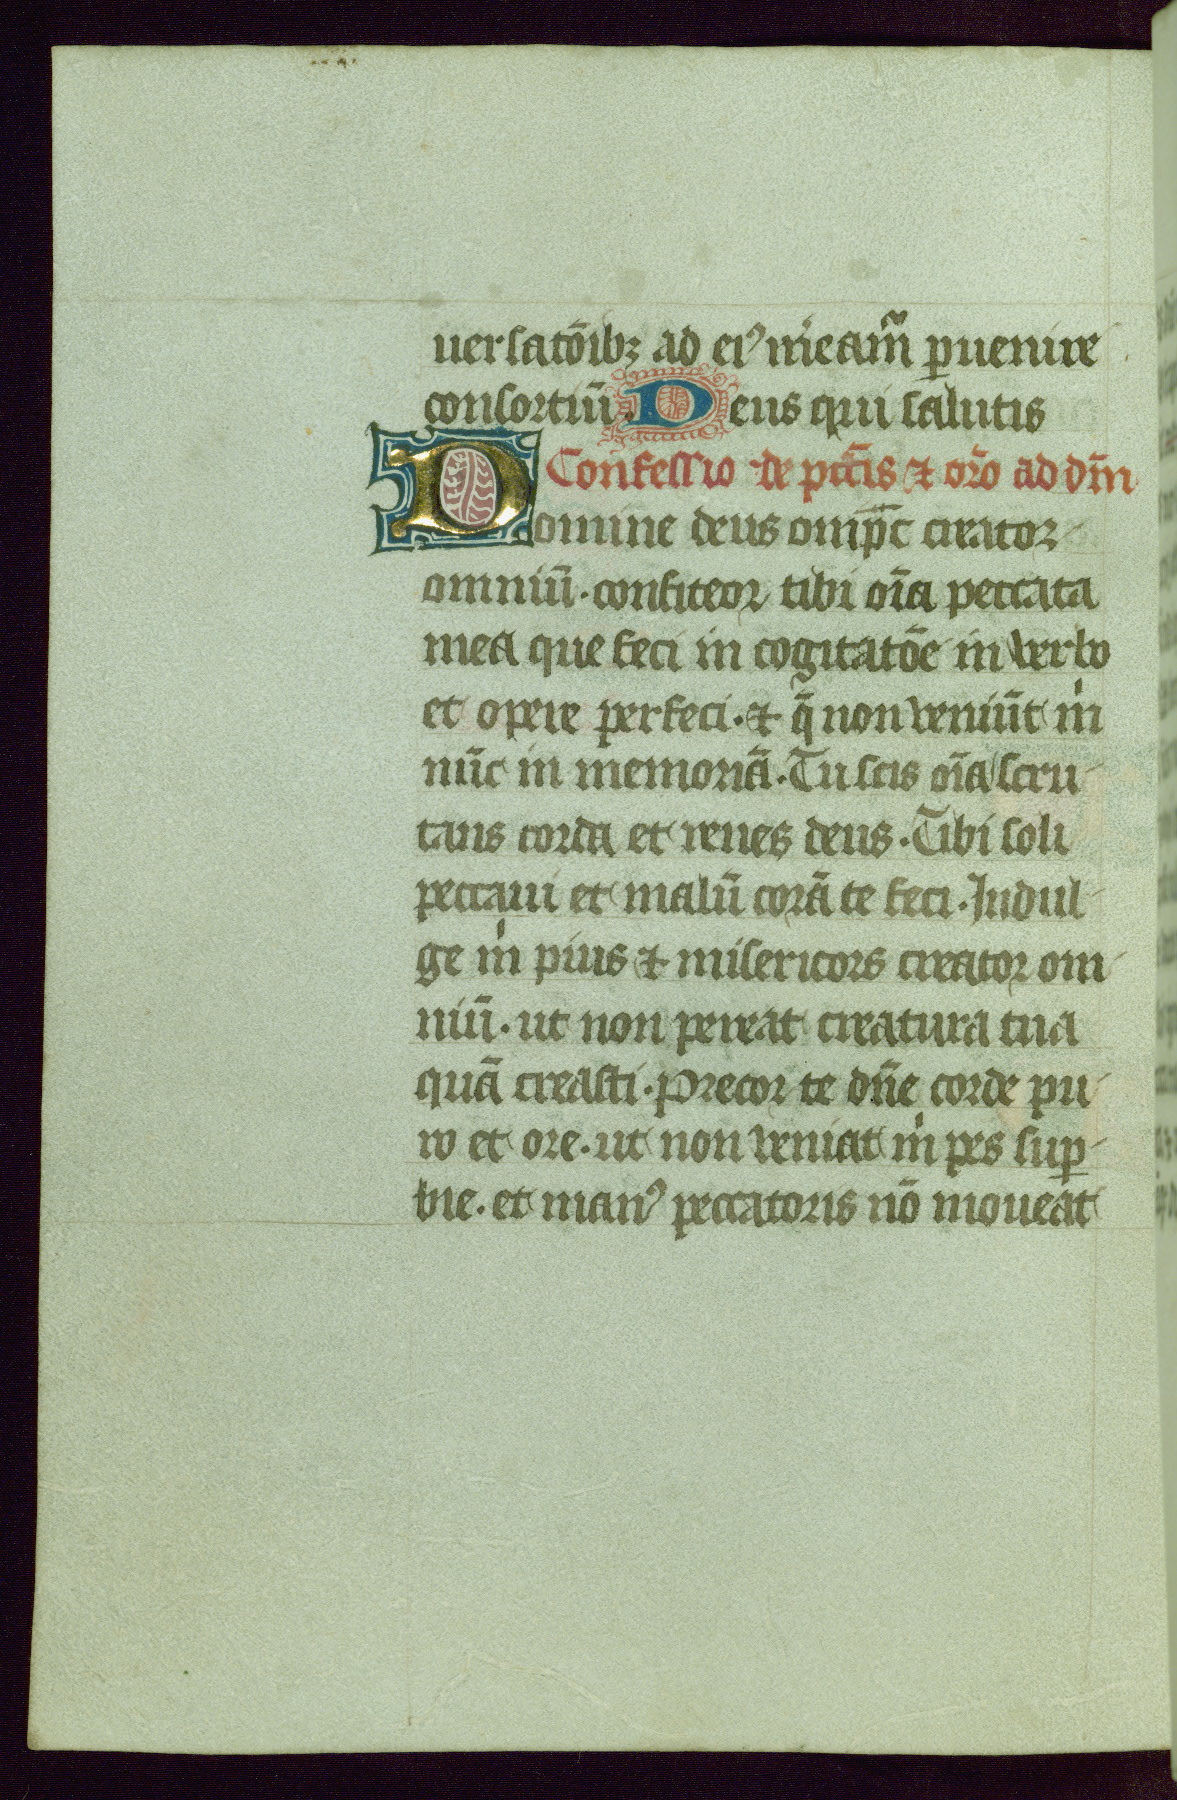 uersatōibꝫ ad eiꝰ meam̄ ꝑuenire
consortiū. Deus qui salutis
Confessio de pctīs ⁊ orō ad dm̄
Domine deus omīpc̄ creator
omniū. confiteor tibi oīa peccata
mea que feci in cogitatōe in verbo
et opere perfeci. ⁊ q̄ non veniūt mͥ
nūc in memoriā. Tu scis oīa scru
tans corda et renes deus. Tibi soli
peccaui et malū corā te feci. Indul
ge mͥ pius ⁊ misericors creator om
niū. ut non pereat creatura tua
quā creasti. Precor te dn̄e corde pu
ro et ore. ut non veniat mͥ pes suꝑ
bie. et manꝰ peccatoris nō moueat